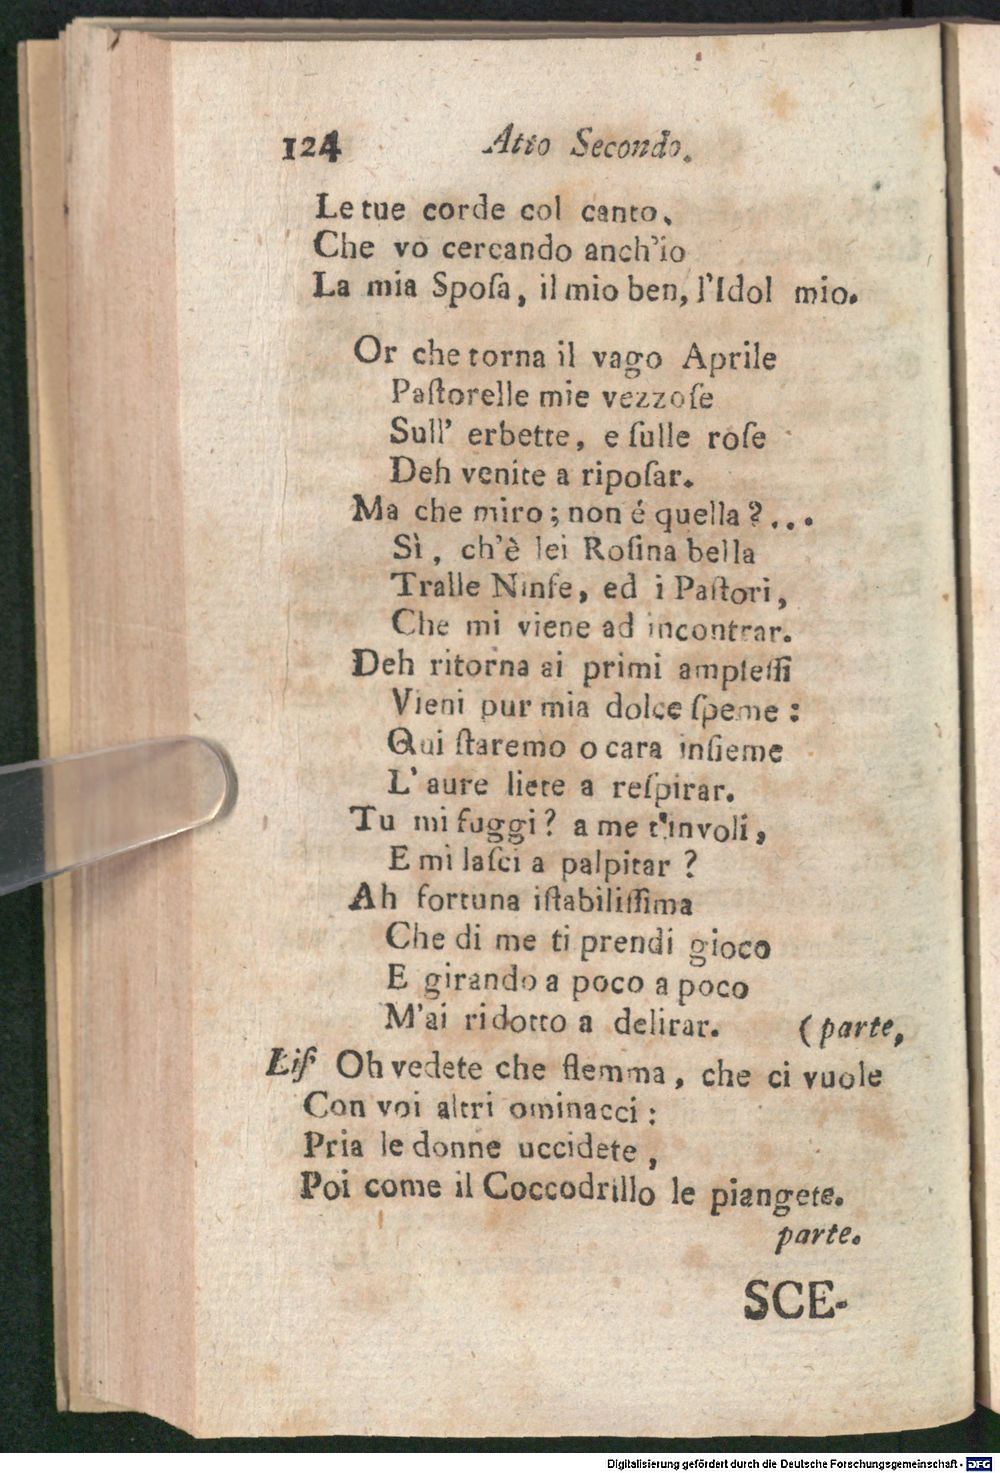 124 Atto Secondo.
Le tue corde col canto,
Che vo cercando anch'io
La mia Sposa, il mio ben, l'Idol mio.
Or che torna il vago Aprile
Paſtorelle mie vezzoſe
Sull' erbette, e ſulle roſe
Deh venite a ripoſar.
Ma che miro; non é quella?...
Sì, ch'è lei Roſina bella
Tralle Ninfe, ed i Paſtori,
Che mi viene ad incontrar.
Deh ritorna ai primi ampleſſi
Vieni pur mia dolce ſpeme:
Qui ſtaremo o cara inſieme
L'aure liete a reſpirar.
Tu mi fuggi? a me t'involi,
E mi laſci a palpitar?
Ah fortuna iſtabiliſſima
Che di me ti prendi gioco
E girando a poco a poco
M'ai ridotto a delirar. (parte,
Liſ Oh vedete che flemma, che ci vuole
Con voi altri ominacci:
Pria le donne uccidete,
Poi come il Coccodrillo le piangete.
parte.
SCE-
Digitalisierung gefördert durch die Deutsche Forschungsgemeinschaft - DFG